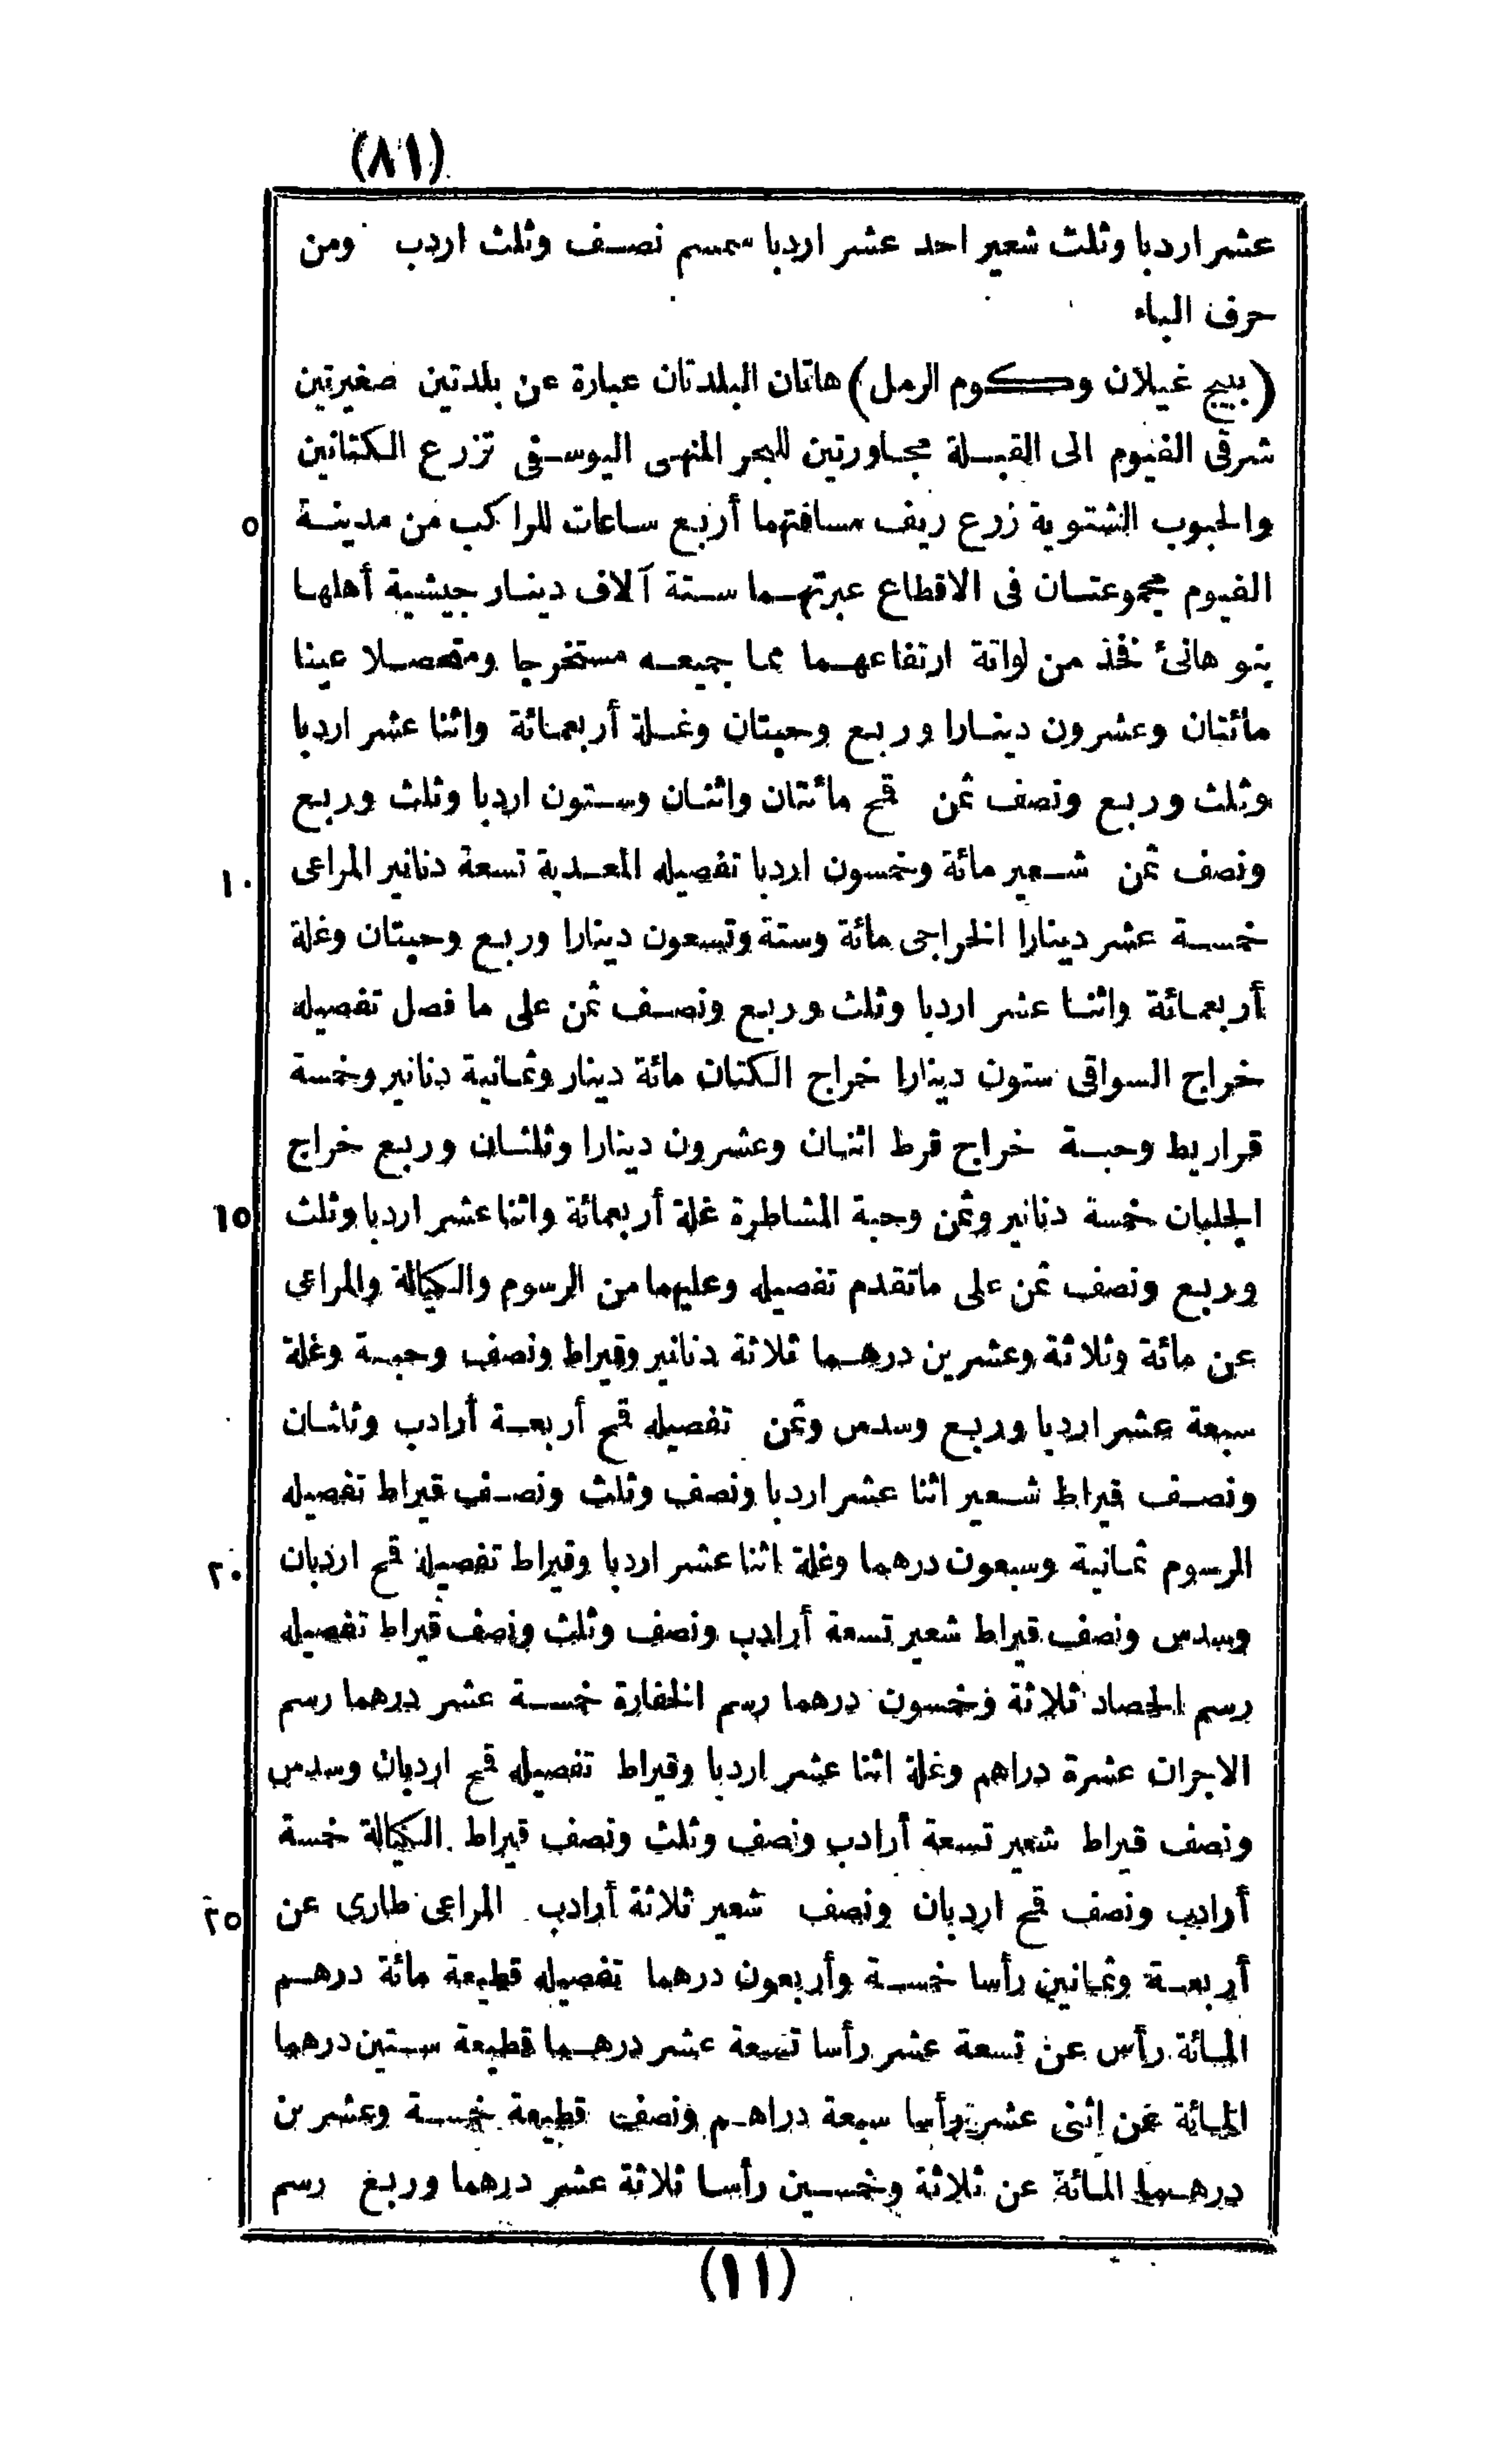 (٨١)
عشر اردبا وثلث شعير احد عشر اردبا سمسم نصف وثلث اردب ومن
حرف الباء
(ببيج غيلان وكوم الرمل) هاتان البلدتان عبارة عن بلدتين صغيرتين
شرقى الفيوم الى القبلة مجاورتين للبحر المنهى اليوسفى تزرع الكتانين
٥ والحبوب الشتوية زرع ريف مسافتهما أربع ساعات للراكب من مدينة
الفيوم مجموعتان فى الاقطاع عبرتهما ستة آلاف دينار جيشية أهلها
بنو هانئ نفخذ من لواتة ارتفاعهما مما جميعه مستخرجا ومتحصلا عينا
مائتان وعشرون دينارا وربع وحبتان وغلة أربعمائة واثنا عشر اردبا
وثلث وربع ونصف ثمن قمح مائتان واثنان وستون اردبا وثلث وربع
١٠ ونصف ثمن شعير مائة وخمسون اردبا تفصيله المعدية تسعة دنانير المراعى
خمسة عشر دينارا الخراجى مائة وستة وتسعون دينارا وربع وحبتان وغلة
أربعمائة واثنا عشر اردبا وثلث وربع ونصف ثمن على ما فصل تفصيله
خراج السواقى ستون دينارا خراج الكتان مائة دينار وثمانية دنانير وخمسة
قراريط وحبة خراج قرط اثنان وعشرون دينارا وثلثان وربع خراج
١٥ الجلبان خمسة دنانير وثمن وحبة المشاطرة غلة أربعمائة واثنا عشر اردبا وثلث
وربع ونصف ثمن على ماتقدم تفصيله وعليهما من الرسوم والكيالة والمراعى
عن مائة وثلاثة وعشرين درهما ثلاثة دنانير وقيراط ونصف وحبة وغلة
سبعة عشر اردبا وربع وسدس وثمن تفصيله قمح أربعة أرادب وثلثان
ونصف قيراط شعير اثنا عشر اردبا ونصف وثلث ونصف قيراط تفصيله
٢٠ الرسوم ثمانية وسبعون درهما وغلة اثنا عشر اردبا وقيراط تفصيله قمح اردبان
وسدس ونصف قيراط شعير تسعة أرادب ونصف وثلث ونصف قيراط تفصيله
رسم الحصاد ثلاثة وخمسون درهما رسم الخفارة خمسة عشر درهما رسم
الاجران عشرة دراهم وغلة اثنا عشر اردبا وقيراط تفصيله قمح اردبان وسدس
ونصف قيراط شعير تسعة أرادب ونصف وثلث ونصف قيراط الكيالة خمسة
٢٥ أرادب ونصف قمح اردبان ونصف شعير ثلاثة أرادب المراعى طارى عن
أربعة وثمانين رأسا خمسة وأربعون درهما تفصيله قطيعة مائة درهم
المائة رأس عن تسعة عشر رأسا تسعة عشر درهما قطيعة ستين درهما
المائة عن اثنى عشر رأسا سبعة دراهم ونصف قطيعة خمسة وعشرين
درهما المائة عن ثلاثة وخمسين رأسا ثلاثة عشر درهما وربع رسم
(١١)